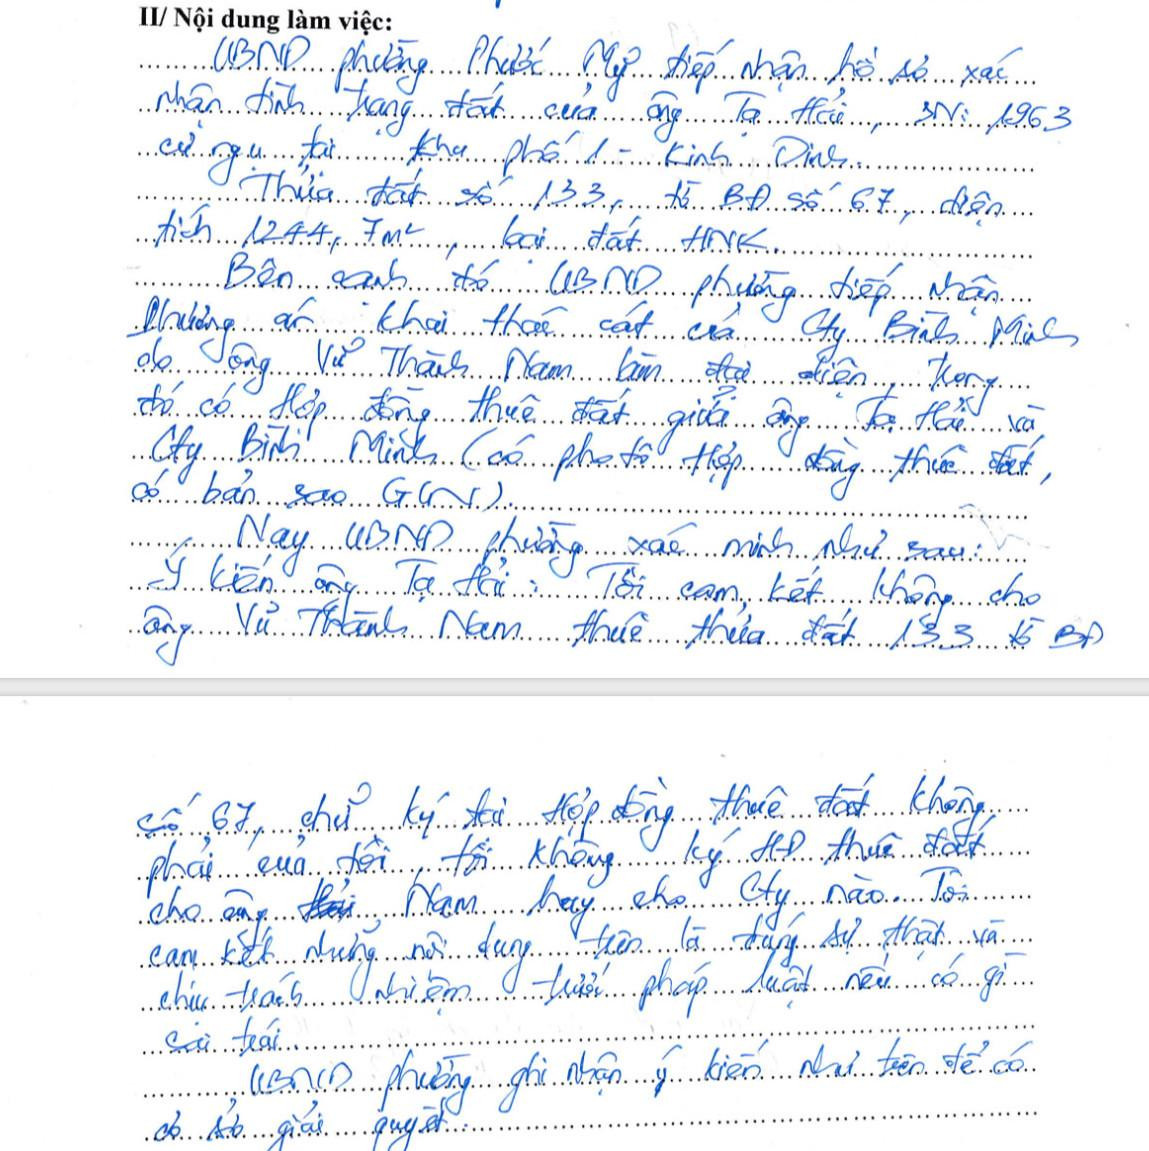 II/ Nội dung làm việc:
UBND phường Phước Mỹ tiếp nhận hồ sơ xác
nhận tình trạng đất của ông Tạ Hải, SN: 1963
cư ngụ tại khu phố 1 - Kinh Dinh.
Thửa đất số 133, tờ BĐ số 67, diện
tích 1244,7m², loại đất HNK.
Bên cạnh đó UBND phường tiếp nhận
Phương án khai thác cát của Cty Bình Minh
do ông Vũ Thành Nam làm đại diện, trong
đó có Hợp đồng thuê đất giữa ông Tạ Hải và
Cty Bình Minh (có photo Hợp đồng thuê đất,
có bản sao GCN).
Nay UBND phường xác minh như sau:
Ý kiến ông Tạ Hải: Tôi cam kết không cho
ông Vũ Thành Nam thuê thửa đất 133 tờ BĐ
số 67, chữ ký tại Hợp đồng thuê đất không
phải của tôi, tôi không ký HĐ thuê đất
cho ông Nam hay cho Cty nào. Tôi
cam kết những nội dung trên là đúng sự thật và
chịu trách nhiệm trước pháp luật nếu có gì
sai trái.
UBND phường ghi nhận ý kiến như trên để có
cơ sở giải quyết.